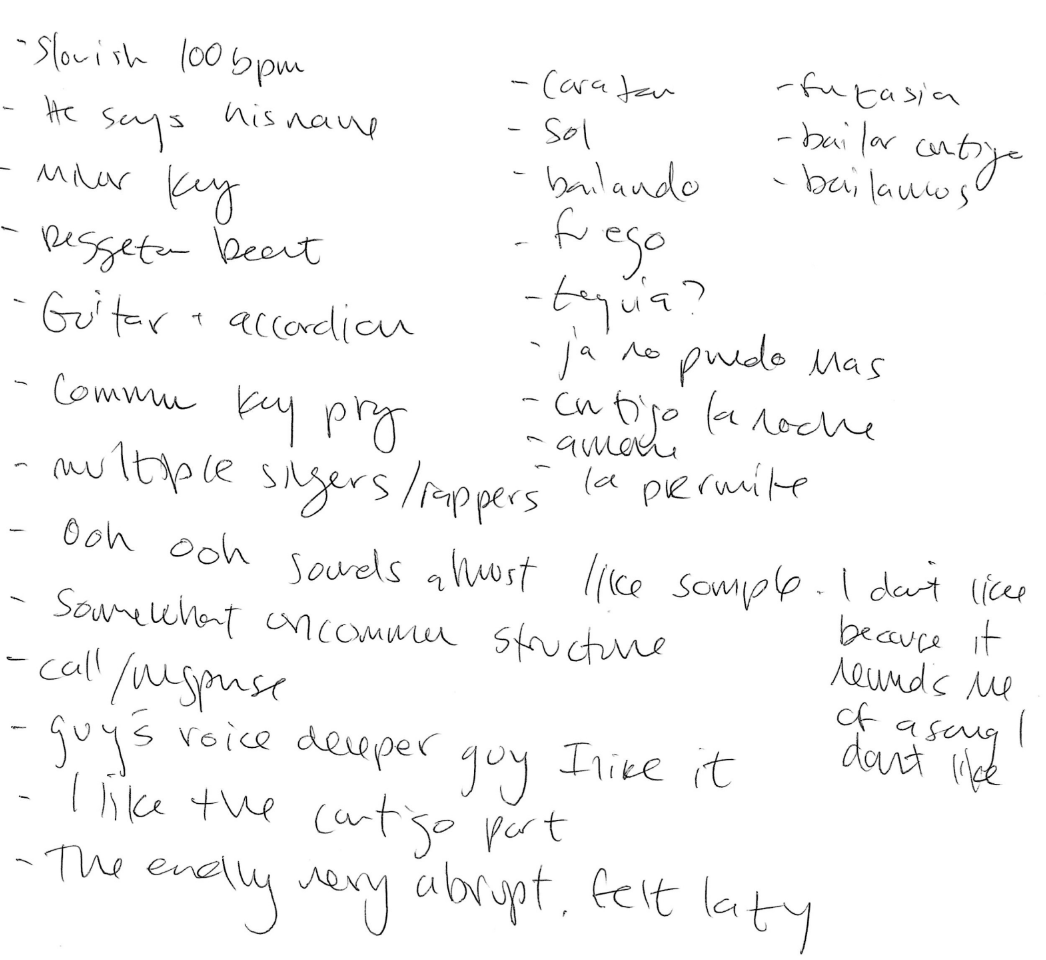 - Slowish 100 bpm
- He says his name
- Minor key
- Reggeton beat
- Guitar + accordian
- Common key prg
- multiple singers/rappers
- Ooh ooh sounds almost like sample. I don't like
because it
reminds me
of a song I
don't like
- Somewhat uncommon structure
- call/response
- guy's voice deeper guy I like it
- I like the contigo part
- The ending very abrupt. felt lazy
- Sol
- bailando
- fuego
- tequia?
- ja no puedo mas
- contigo la noche
- la permite
- fantasia
- bailar contigo
- bailamos